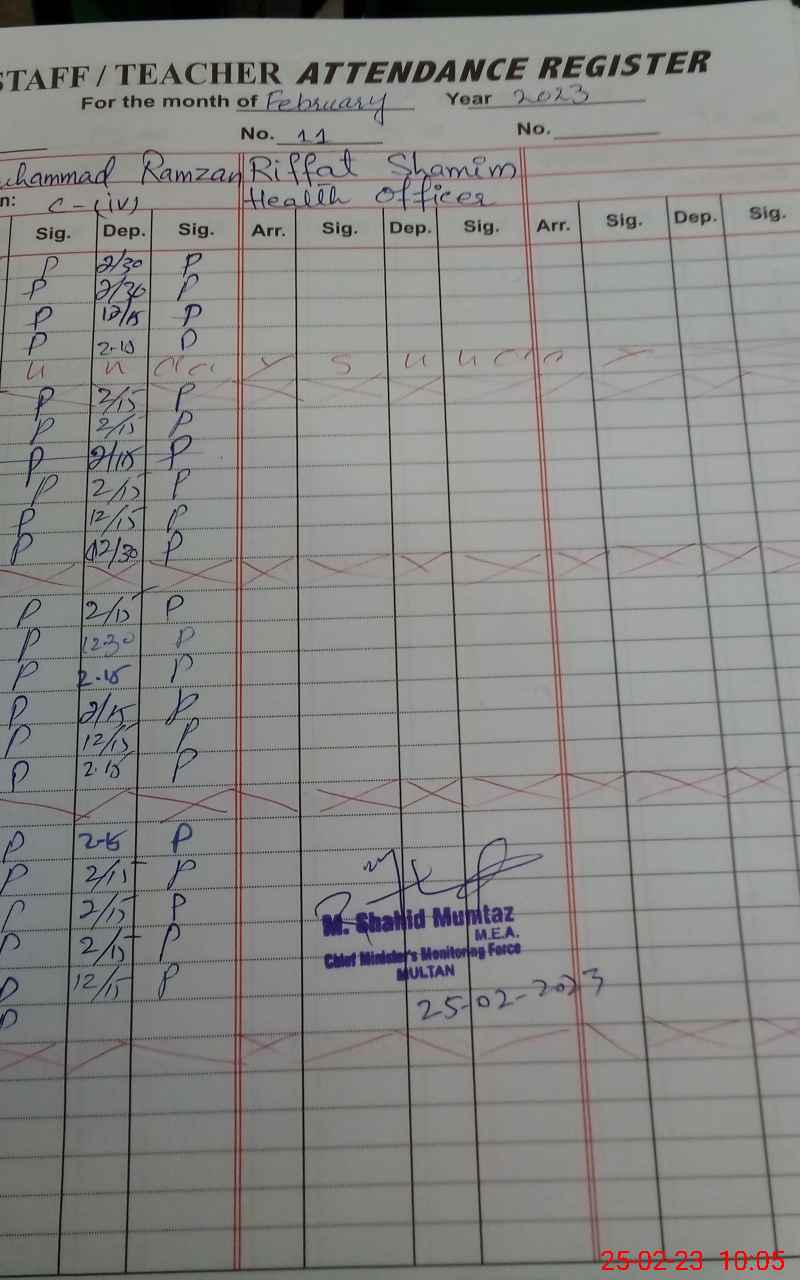 STAFF / TEACHER ATTENDANCE REGISTER
For the month of February Year 2023
No. 11 No.
Ramzan Riffat Shamim
n: C-(iv) Health Officer
Sig. Dep. Sig. Arr. Sig. Dep. Sig. Arr. Sig. Dep. Sig.
P 2/30 P
P 2/30 P
P 12/15 P
P 2-15 P
P 2/15 P
P 2/15 P
P 2/15 P
P 2/15 P
P 12/15 P
P 12/30 P
P 2/15 P
P 12-30 P
P 2-15 P
P 2/15 P
P 12/15 P
P 2-15 P
P 2-15 P
P 2/15 P
P 2/15 P
P 2/15 P
P 12/15 P
P
M. Shahid Mumtaz
M.E.A.
Chief Minister's Monitoring Force
MULTAN
25-02-2023
25-02-23 10:05